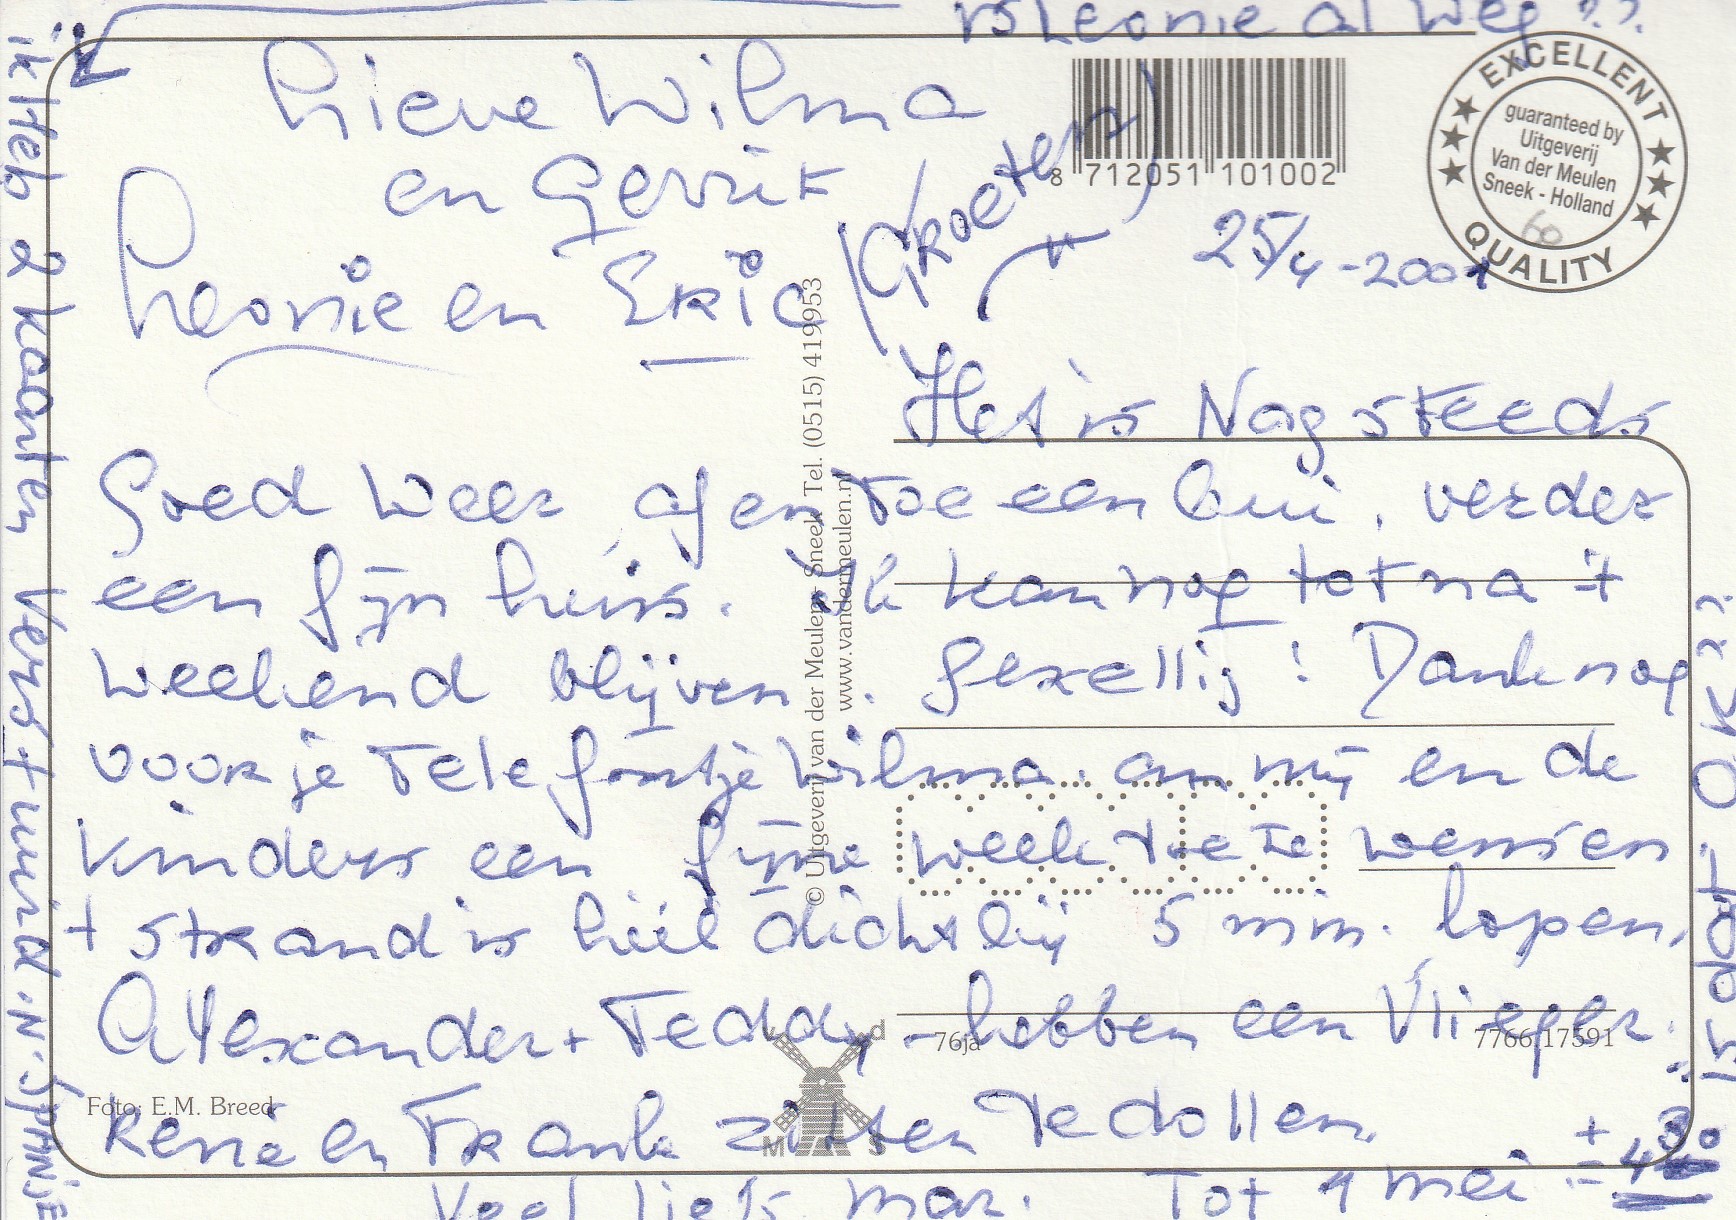 is Leonie al weg ??
Lieve Wilma
en Gerrit
Leonie en Eric
(Groeten)
25/4-2001
8 712051 101002
EXCELLENT
guaranteed by
Uitgeverij
Van der Meulen
Sneek - Holland
60
QUALITY
Het is Nog steeds
Goed weer af en toe een bui. verder
een fijn huis. ik kan nog tot na 't
weekend blijven. gezellig! Dank nog
voor je telefoontje Wilma. om mij en de
kinders een fijne week toe te wensen
't strand is héél dichtbij 5 min. lopen.
Alexander + Teddy - hebben een Vlieger.
René en Frank zitten te dollen.
Veel liefs mar. Tot 1 mei ±
ik Heb 2 kaarten verstuurd. N. Spanje
© Uitgeverij van der Meulen Sneek Tel. (0515) 419953
www.vandermeulen.nl
76ja
7766.17591
Foto: E.M. Breed
v d
M S